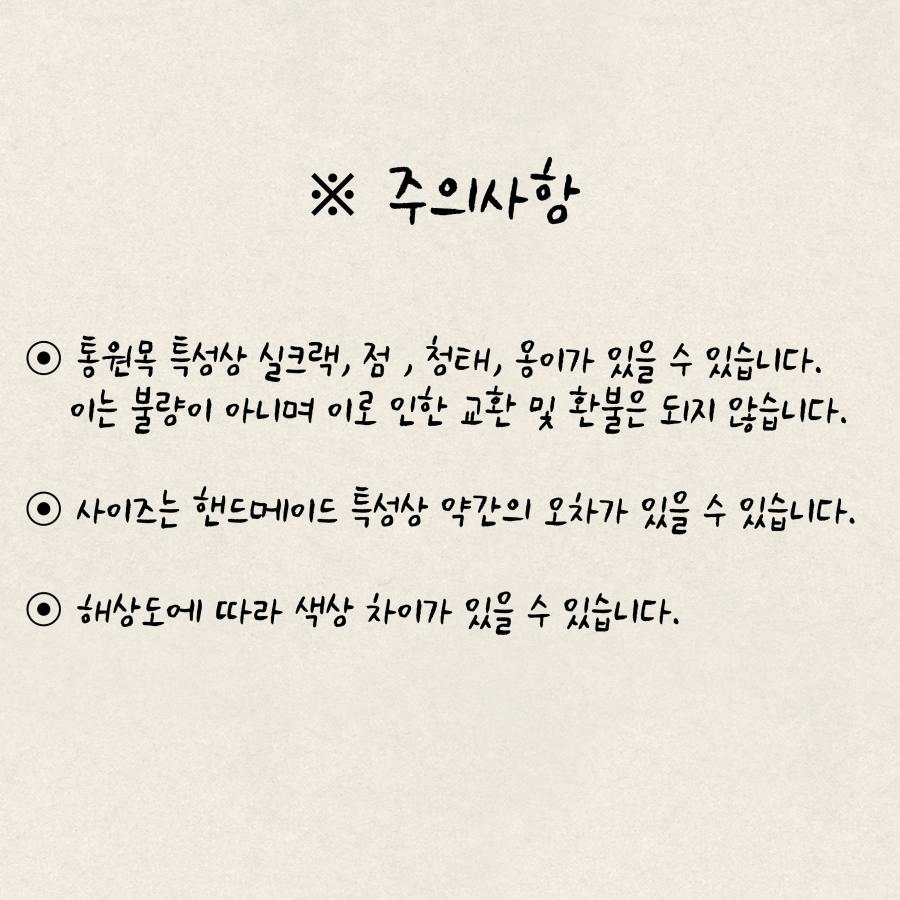 ※ 주의사항
◉ 통원목 특성상 실크랙, 점 , 청태, 옹이가 있을 수 있습니다.
이는 불량이 아니며 이로 인한 교환 및 환불은 되지 않습니다.
◉ 사이즈는 핸드메이드 특성상 약간의 오차가 있을 수 있습니다.
◉ 해상도에 따라 색상 차이가 있을 수 있습니다.